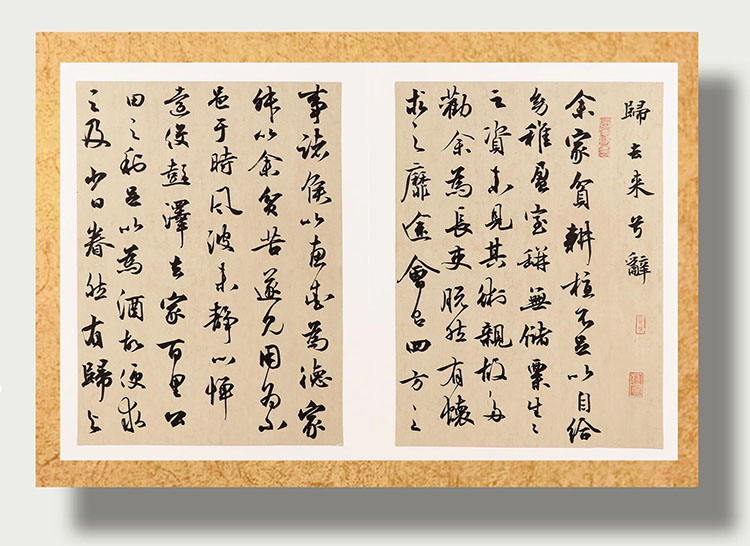 歸去来兮辭
余家貧耕植不足以自給
幼稚盈室缾無儲粟生〻
之資未見其術親故多
勸余為長吏脫然有懷
求之靡途會有四方之
事諸侯以惠愛為德家
叔以余貧苦遂見用為小
邑于時風波未靜心憚
遠役彭澤去家百里公
田之利足以為酒故便求
之及少日眷然有歸與